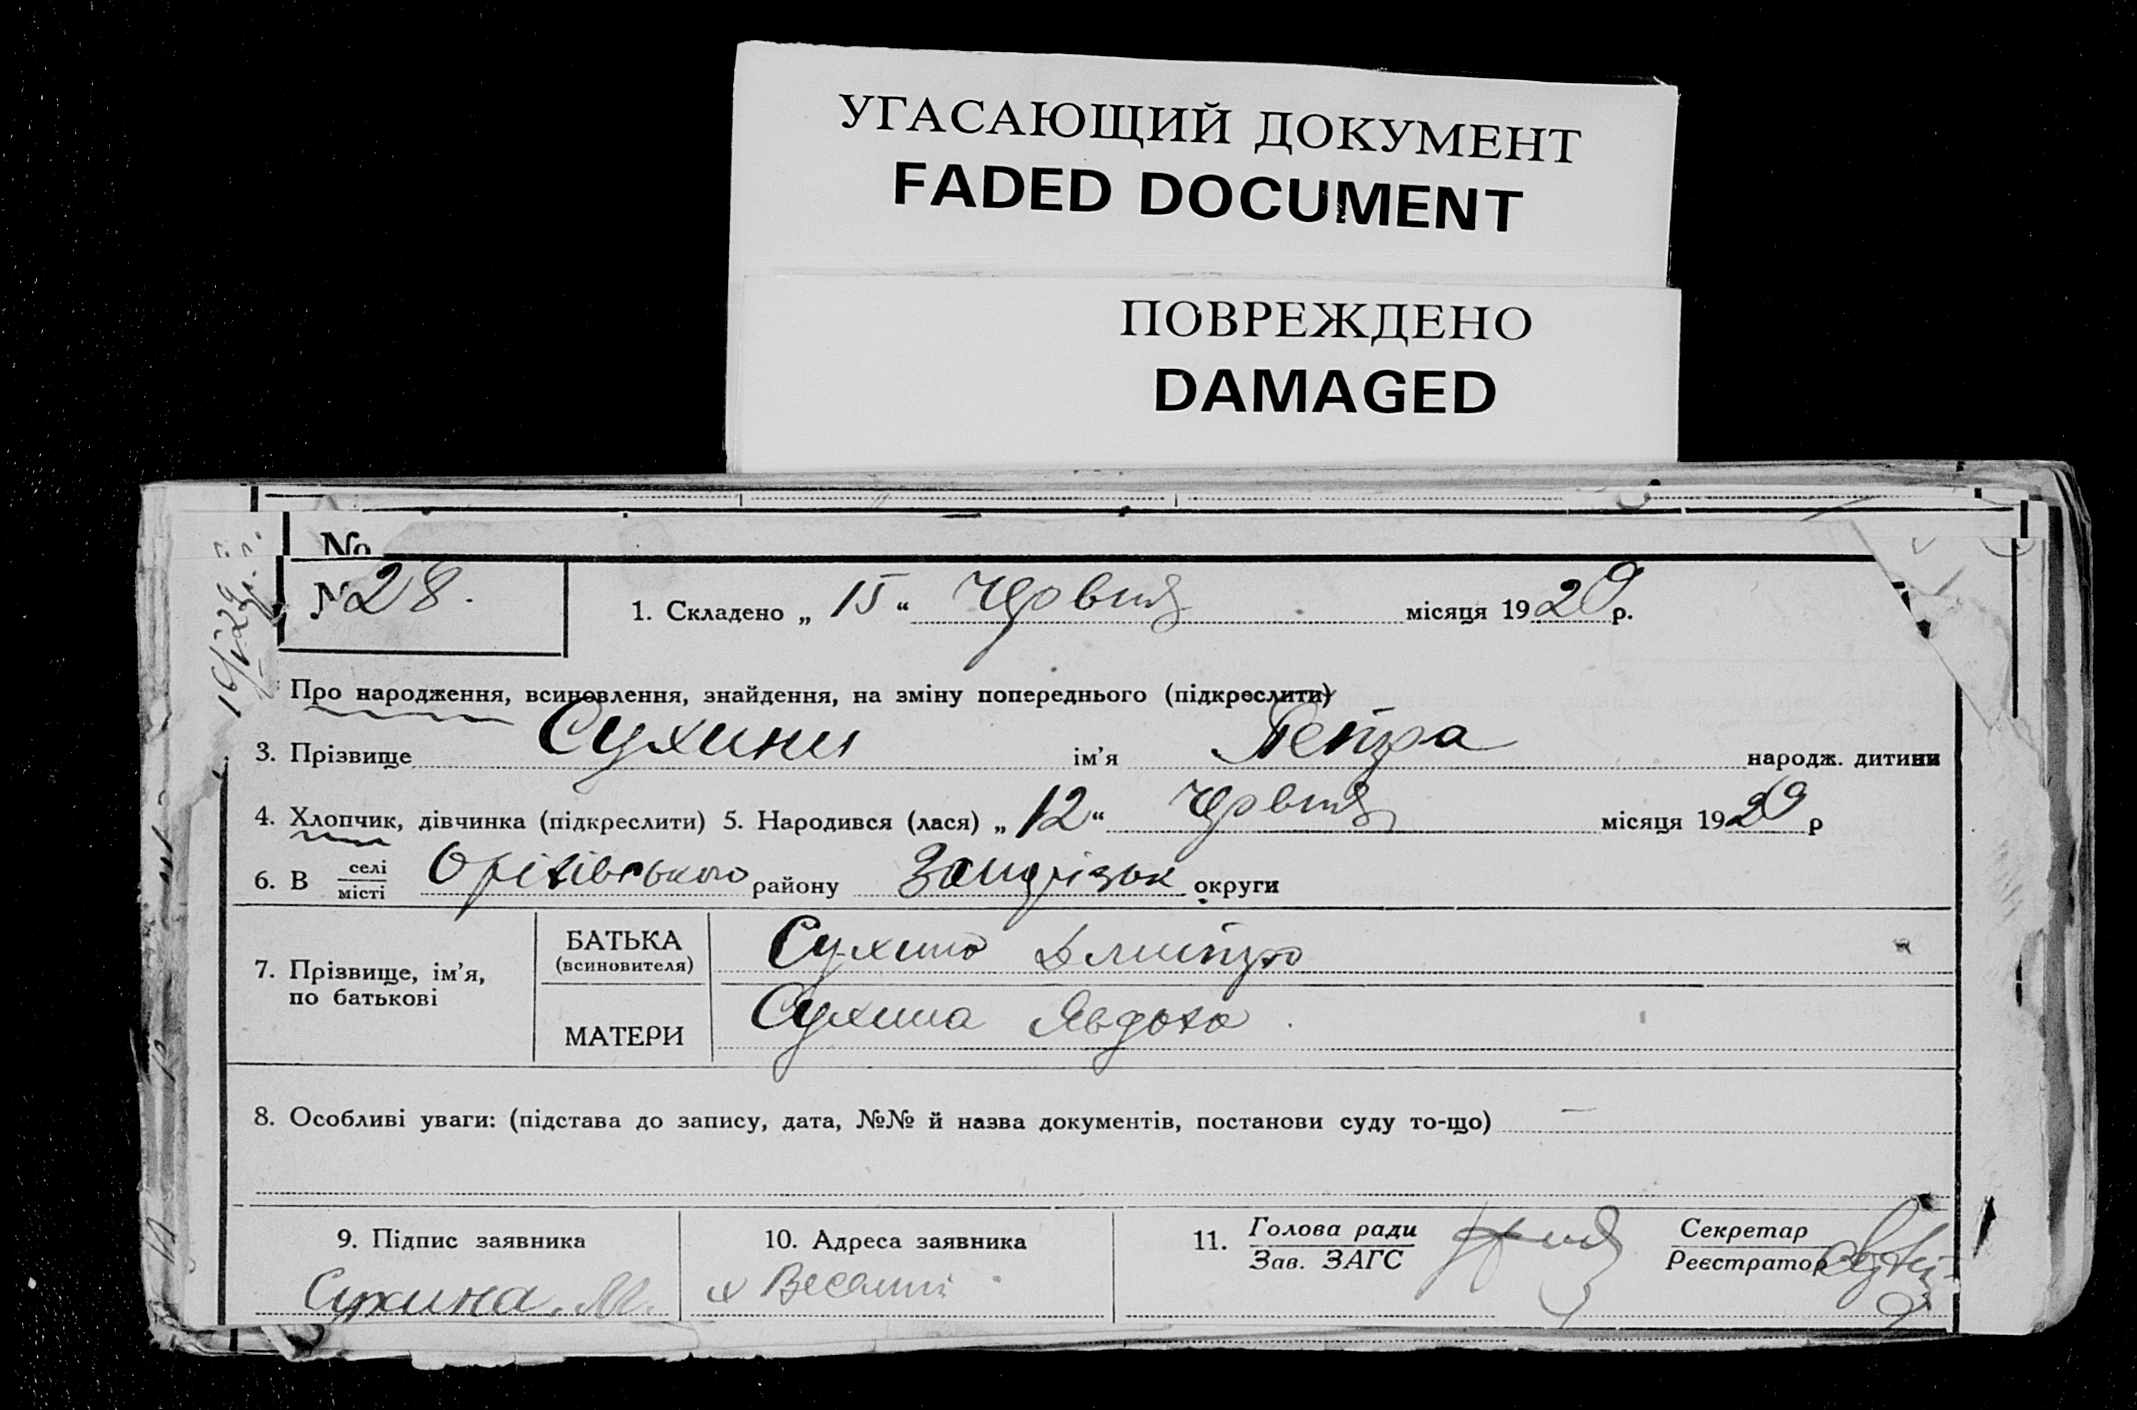 УГАСАЮЩИЙ ДОКУМЕНТ
FADED DOCUMENT
ПОВРЕЖДЕНО
DAMAGED
№
№ 28.
1. Складено „ 15 “ Червня місяця 1929 р.
Про народження, всиновлення, знайдення, на зміну попереднього (підкреслити)
3. Прізвище Сухини ім’я Петра народж. дитини
4. Хлопчик, дівчинка (підкреслити) 5. Народився (лася) „ 12 “ Червня місяця 1929 р
6. В селі місті Оріхівського району Запорізьк округи
7. Прізвище, ім’я, по батькові
БАТЬКА (всиновителя) Сухина Дмитро
МАТЕРИ Сухина Явдоха
8. Особливі уваги: (підстава до запису, дата, №№ й назва документів, постанови суду то-що) —
9. Підпис заявника
10. Адреса заявника
11. Голова ради Зав. ЗАГС
Секретар Реєстратор
Сухина
х Веселий